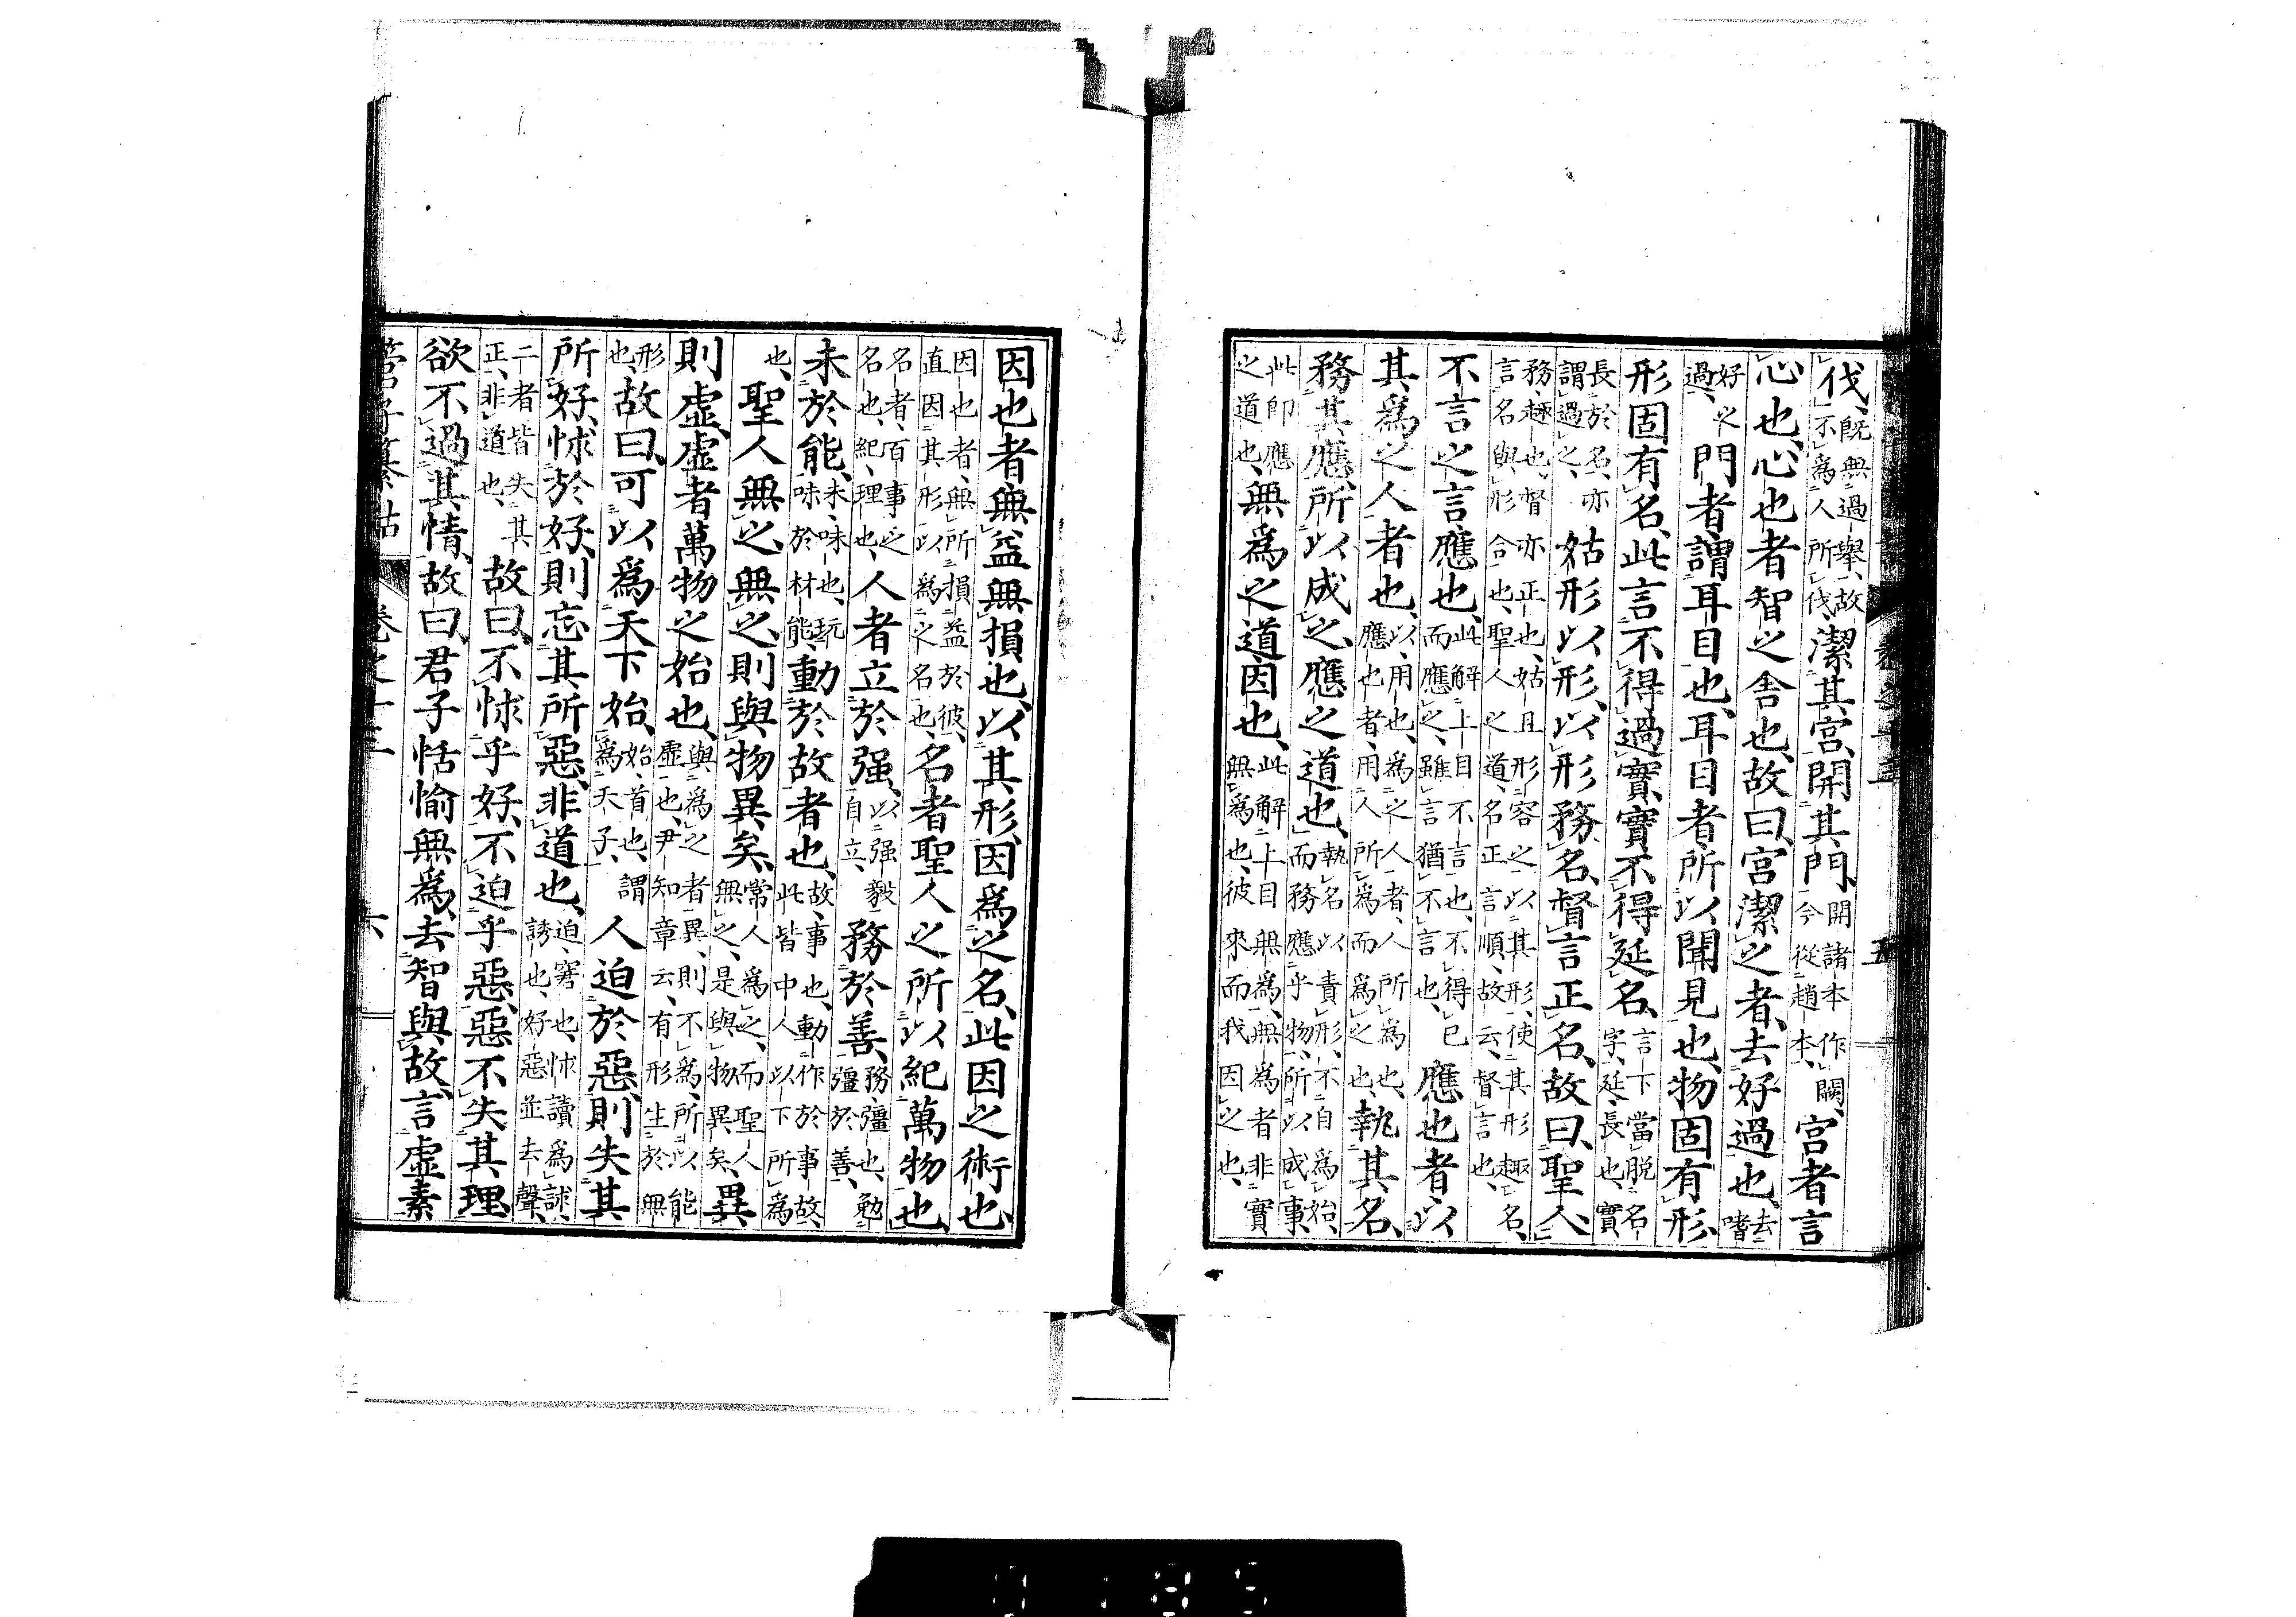 卷之十三 五
伐、既無過舉、故不爲人所伐、潔其宮、開其門、開諸本作闕、今從趙本、宮者言
心也、心也者智之舍也、故曰、宮潔之者、去好過也、去嗜
好之過、門者、謂耳目也、耳目者、所以聞見也、物固有形、
形固有名、此言不得過實、實不得延名、言下當脱名字、延、長也、實
長於名、亦謂過之、姑形以形、以形務名、督言正名、故曰、聖人、
務、趣也、督亦正也、姑且形容之以其形、使其形趣名、言名與形合也、聖人之道、名正言順、故云督言也、
不言之言應也、此解上目不言也、不得已而應之、雖言猶不言也、應也者、以
其爲之人者也、以、用也、爲之人者、人所爲也、應也者、用人所爲而爲之也、執其名、
務其應、所以成之、應之道也、執名以責形、不自爲始、而務應乎物、所以成事、
此即應之道也、無爲之道因也、此解上目無爲、無爲者非實無爲也、彼來而我因之也、
因也者、無益無損也、以其形、因爲之名、此因之術也、
因也者、無所損益於彼、直因其形以爲之名也、名者聖人之所以紀萬物也、
名者、百事之名也、紀、理也、人者立於强、以强毅自立、務於善、務、彊也、勉彊於善、
未於能、未、味也、玩味於材能、動於故者也、故、事也、動作於事故、此皆中人以下所爲
也、聖人無之、無之、則與物異矣、常人爲之、而聖人無之、是與物異矣、異
則虛、虛者萬物之始也、與爲之者異、則不爲、所以能虛也、尹知章云、有形生於無
形也、故曰、可以爲天下始、始、首也、謂爲天子、人迫於惡、則失其
所好、怵於好、則忘其所惡、非道也、迫、窘也、怵讀爲訹、誘也、好惡並去聲、
二者皆失其正、非道也、故曰、不怵乎好、不迫乎惡、惡不失其理、
欲不過其情、故曰、君子恬愉無爲、去智與故、言虛素
管子纂詁 卷之十三 六